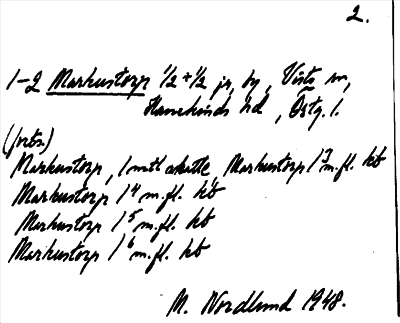 2.
1-2 Markustorp 1/2+1/2 jr, by, Vists sn,
Hanekinds hd, Östg. l.
(forts.)
Markustorp, 1 mtl skatte, Markustorp 1³ m.fl. kb
Markustorp 1⁴ m.fl. kb
Markustorp 1⁵ m.fl. kb
Markustorp 1⁶ m.fl. kb
M. Nordlund 1948.